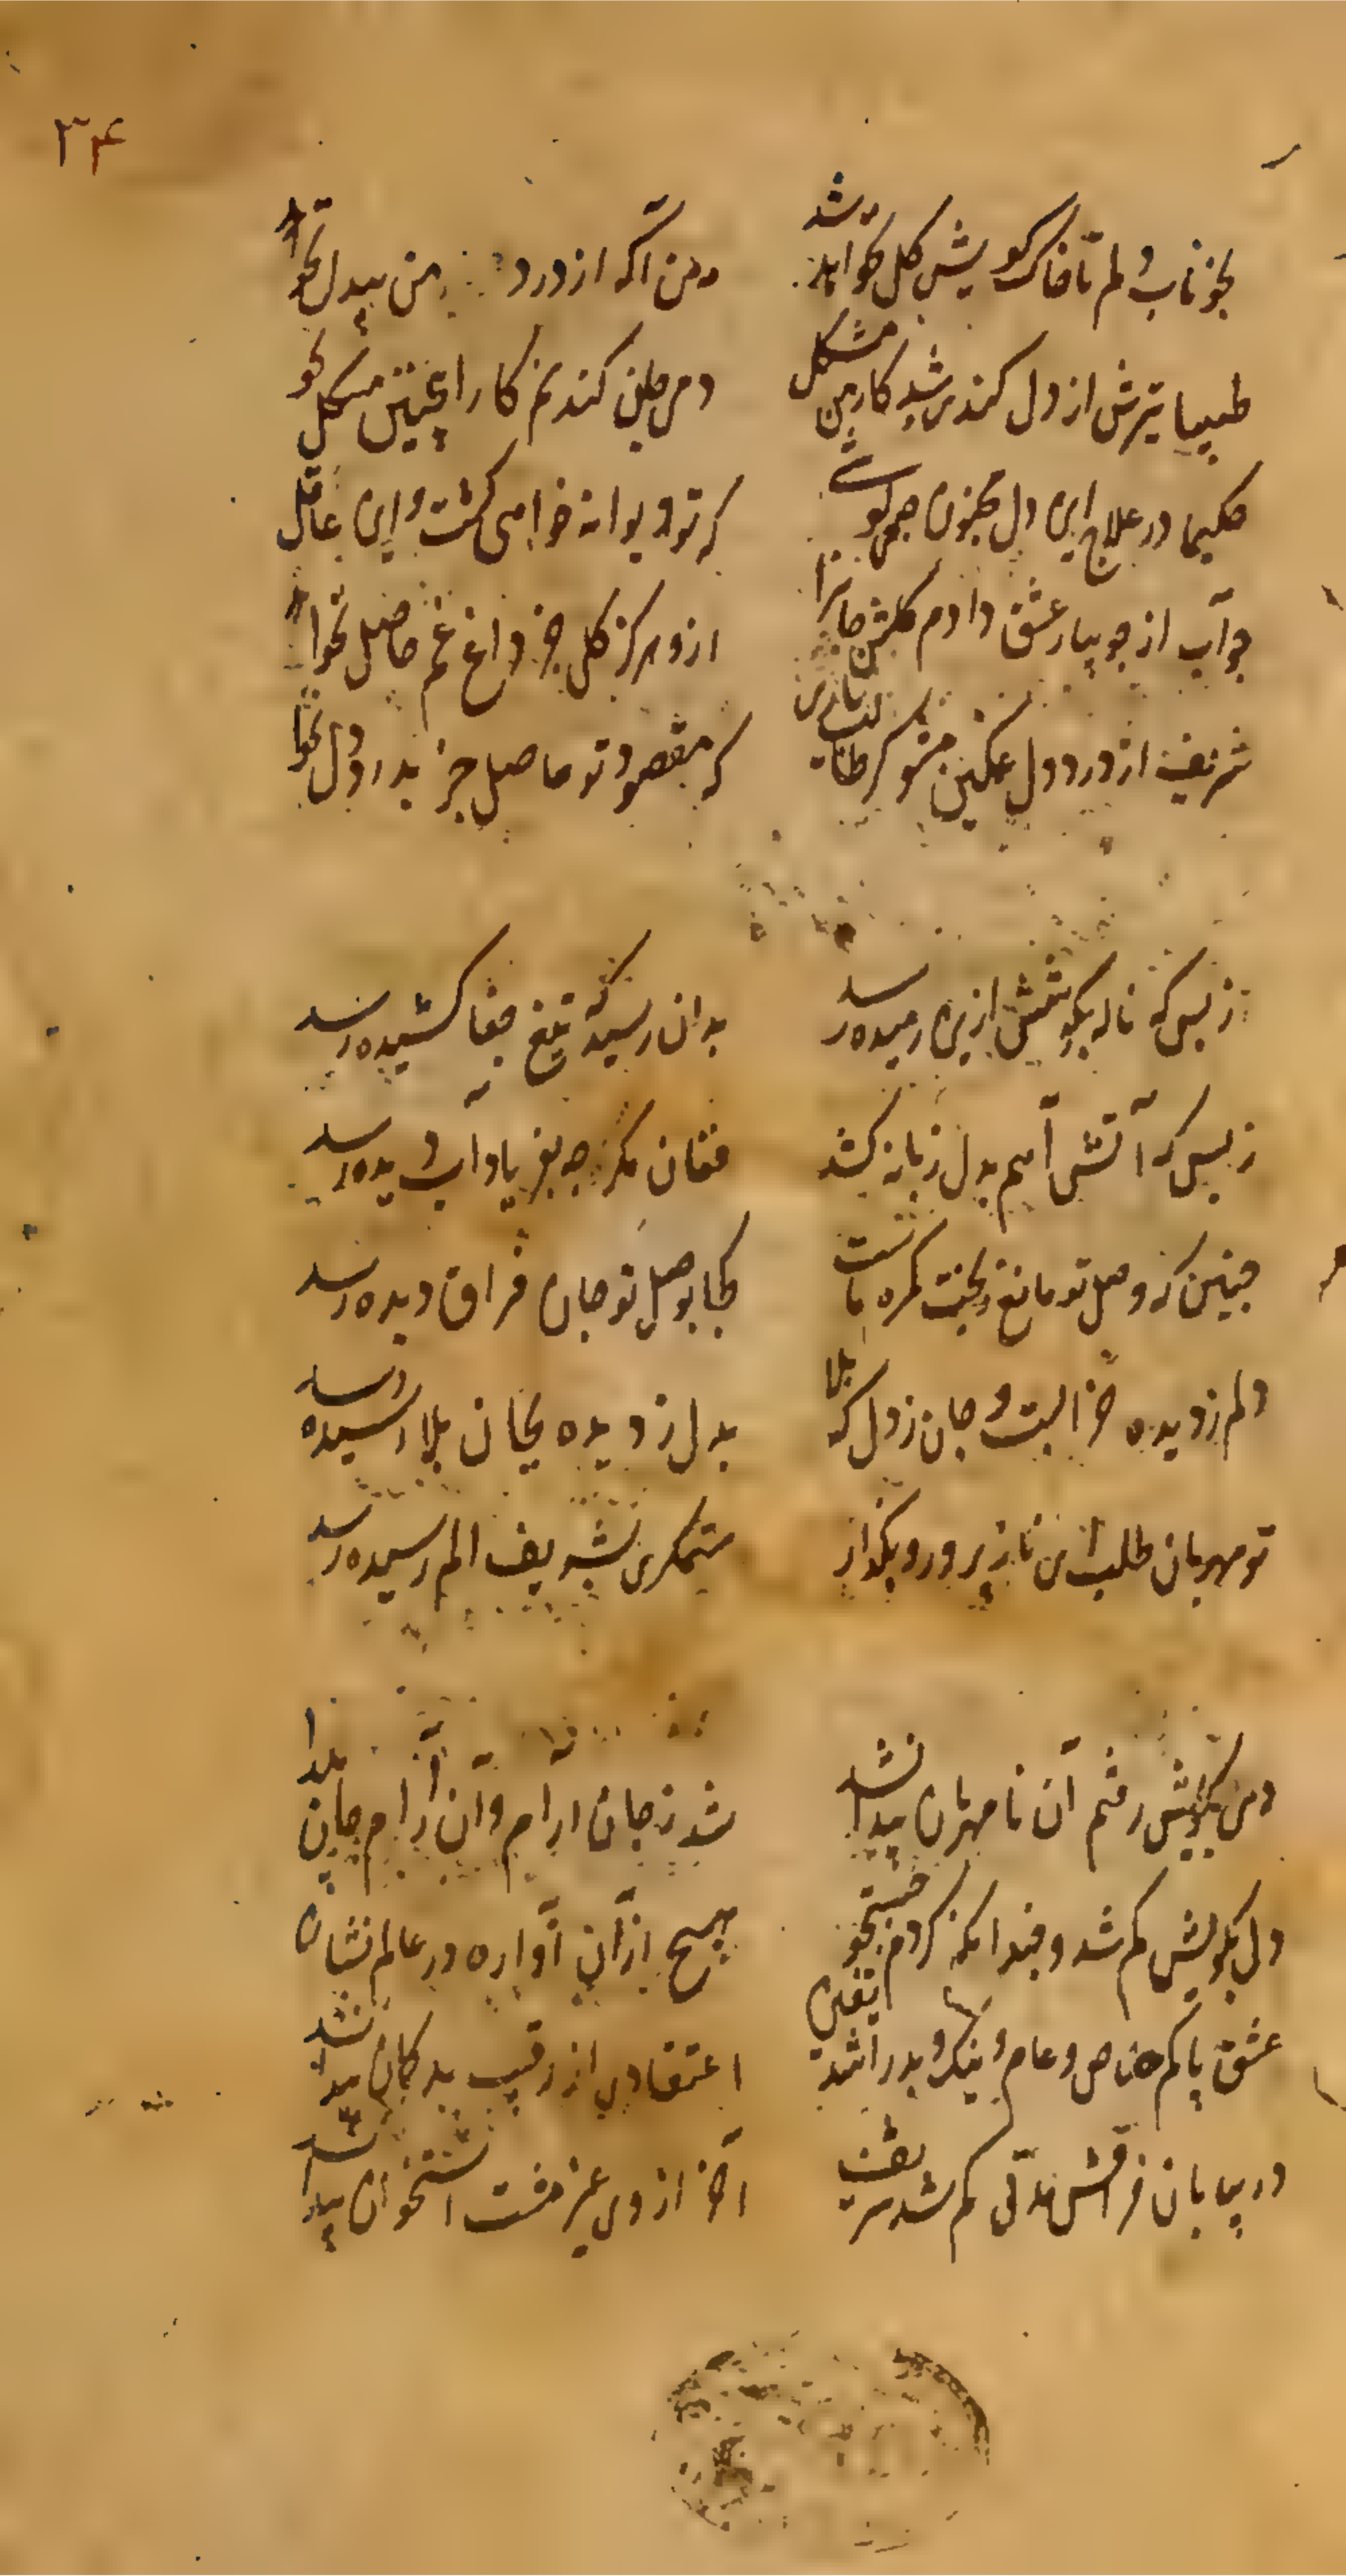 ۳۴
بخوناب دلم تا خاک کویش گل نخواهد شد دمن آگه از درد من بیدل نخوا
طبیبا تیرش از دل کندی شد کار من مشکل دمی جان کندنم کار اینچنین مشکل نخو
حکیما در علاج این دل مجنون چه می کوشی که تو دیوانه خواهی گشت و این عاقل
چو آب از جویبار عشق دادم گلشن جانرا ازو هرگز گلی جز داغ غم حاصل نخوا
شریف از درد دل غمگین مشو گر طالب یاری که مقصود تو حاصل جز بدرد دل نخوا
ز بس که ناله بگوشش ازین رمیده رسد بدان رسید که تیغ جفا کشیده رسد
ز بس که آتش آهم بدل زبانه کشد فغان مگر چه بفریاد آب دیده رسد
چنین که وصل تو مانع ز بخت گمره ماست کجا بوصل تو جان فراق دیده رسد
دلم ز دیده خرابست و جان ز دل که بلا بدل ز دیده بجان بلا رسیده رسد
تو مهربان طلب این ناز پرور و بگذار ستمگری بشریف الم رسیده رسد
دمی بکویش رفتم آن نامهربان پیدا نشد شد ز جان آرام و آن آرام جان پیدا
دل بکویش گم شد و چندانکه کردم جستجو هیچ از آن آواره در عالم نشان
عشق پاکم خاص و عام و نیک و بد را شد یقین اعتقادی از رقیب بد گمان پیدا نشد
در بیابان فراقش مدتی گم شد شریف آخر از وی غیر مشت استخوان پیدا نشد